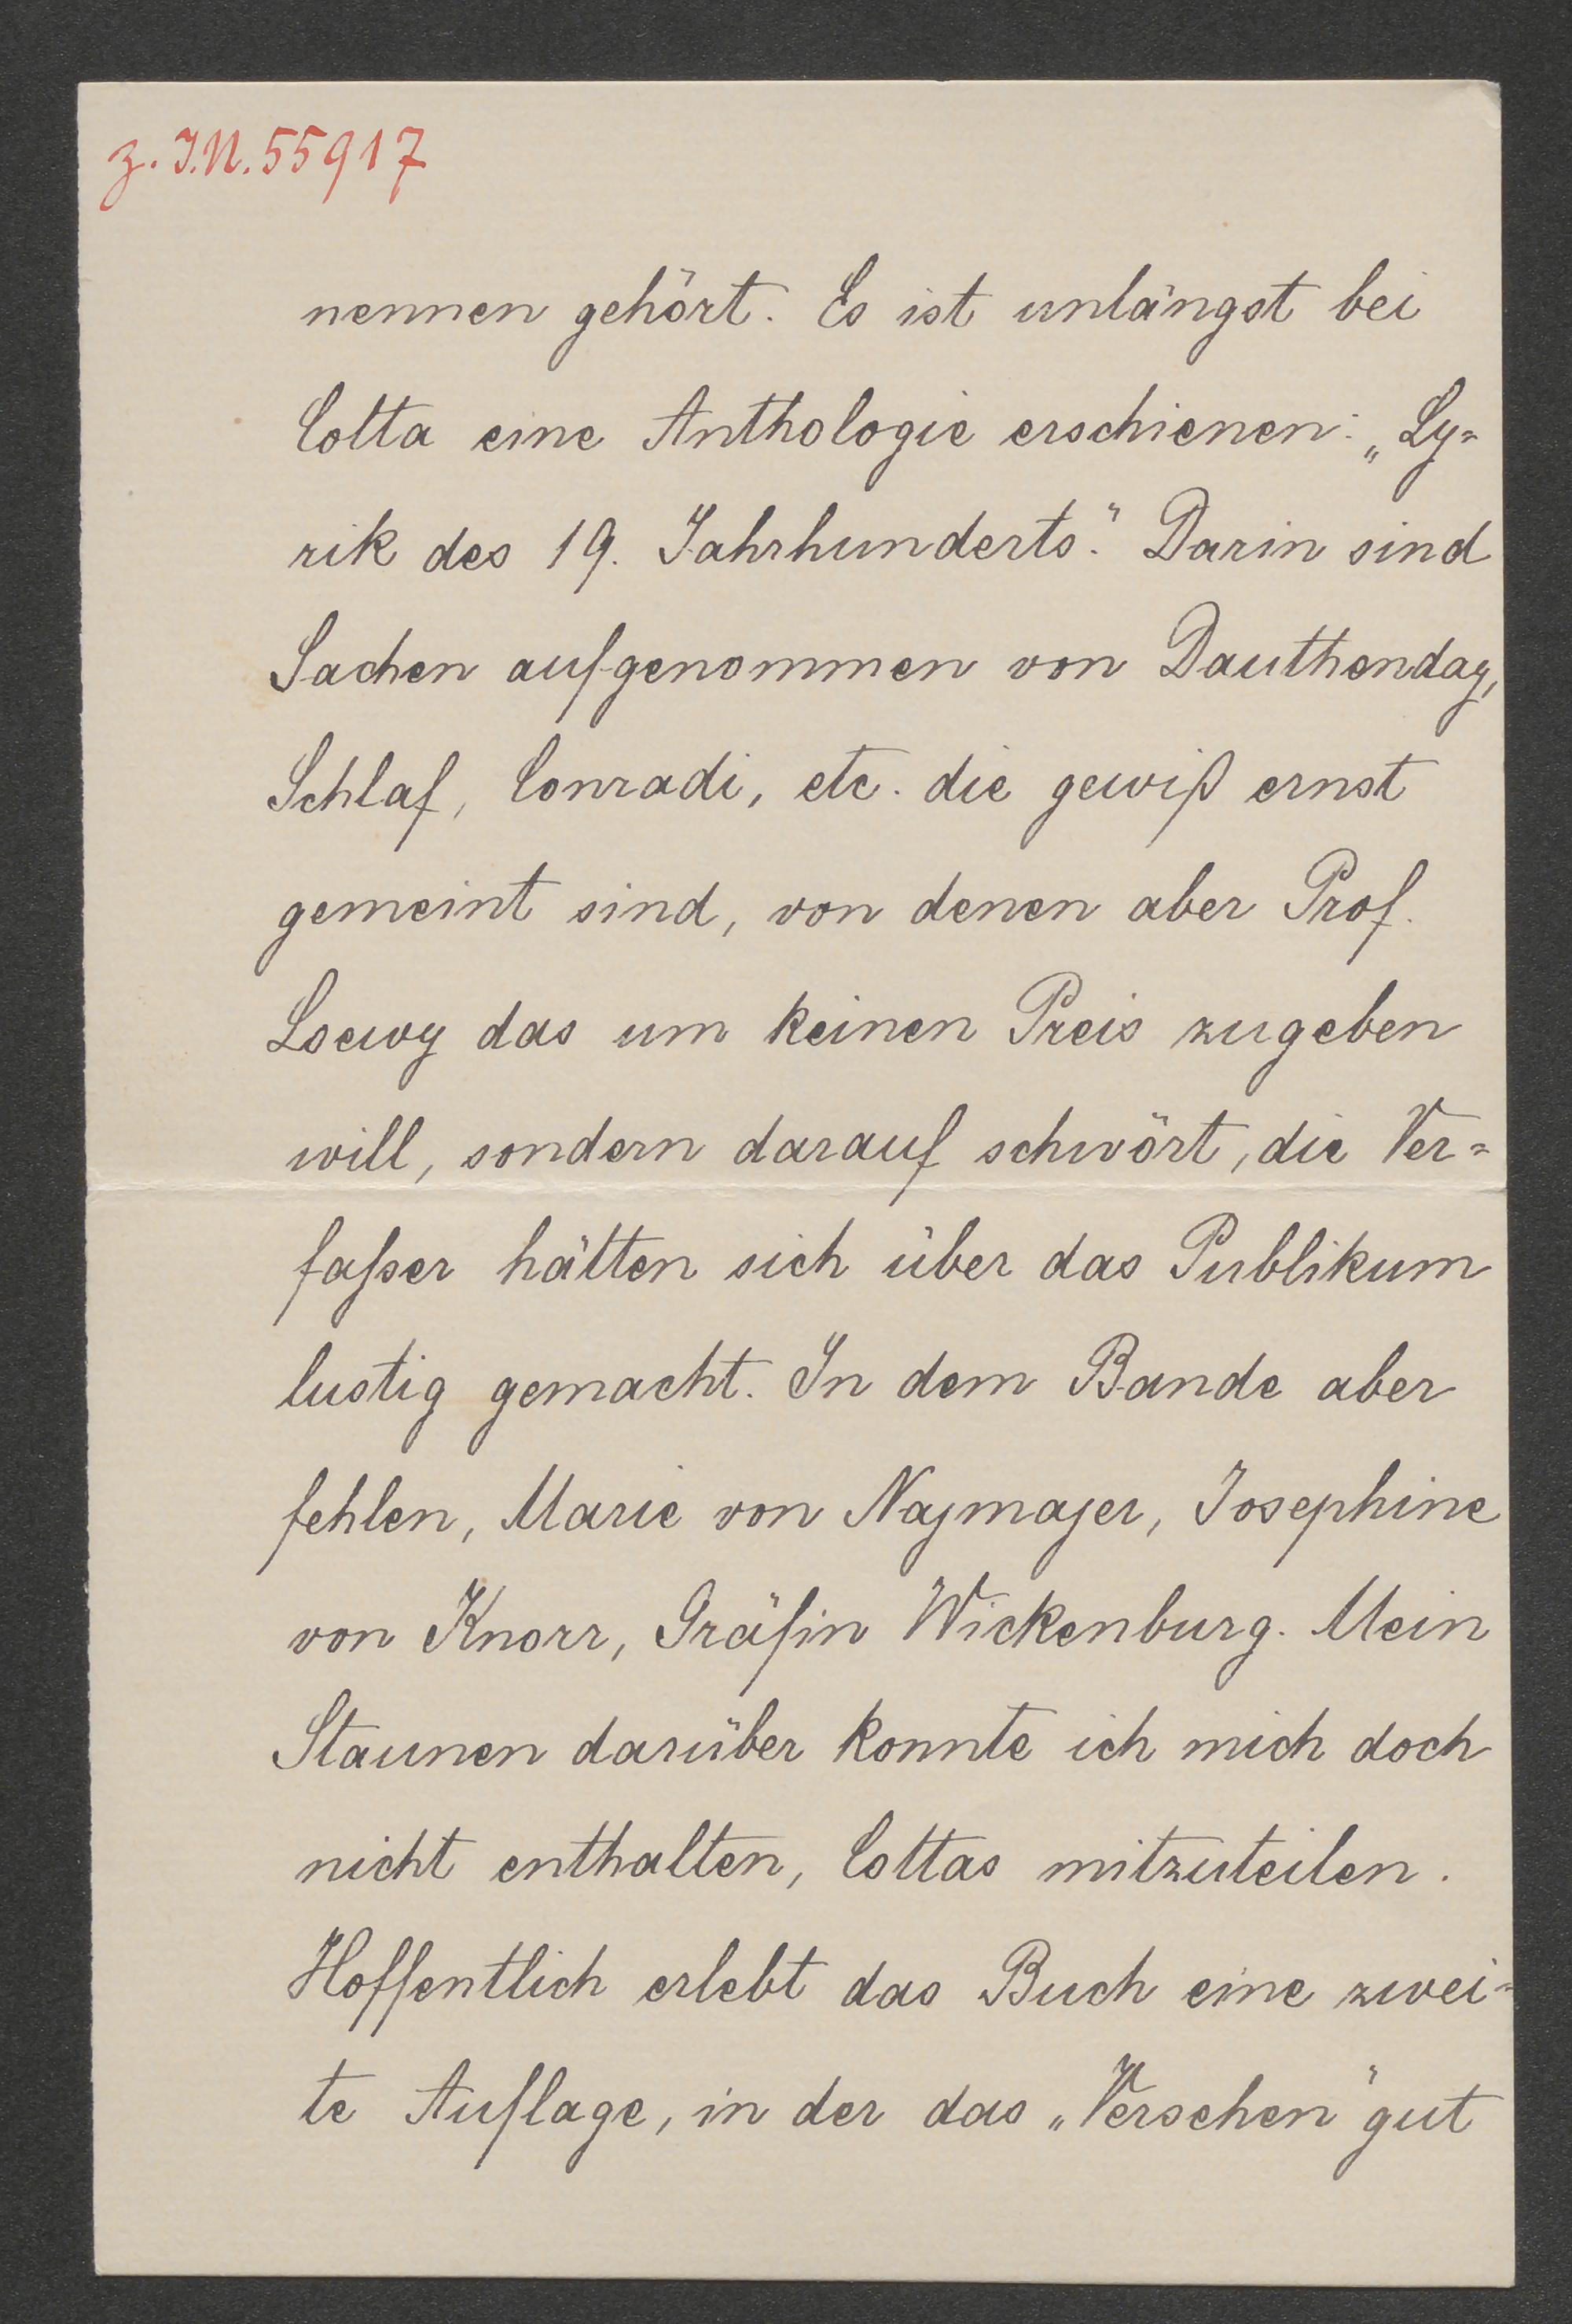 z. I.N. 55917
nennen gehört. Es ist unlängst bei
Cotta eine Anthologie erschienen: „Ly-
rik des 19. Jahrhunderts." Darin sind
Sachen aufgenommen von Dauthenday,
Schlaf, Conradi, etc. die gewiß ernst
gemeint sind, von denen aber Prof.
Loewy das um keinen Preis zugeben
will, sondern darauf schwört, die Ver-
faßer hätten sich über das Publikum
lustig gemacht. In dem Bande aber
fehlen, Marie von Najmajer, Josephine
von Knorr, Gräfin Wickenburg. Mein
Staunen darüber konnte ich mich doch
nicht enthalten, Cottas mitzuteilen.
Hoffentlich erlebt das Buch eine zwei-
te Auflage, in der das „Versehen" gut